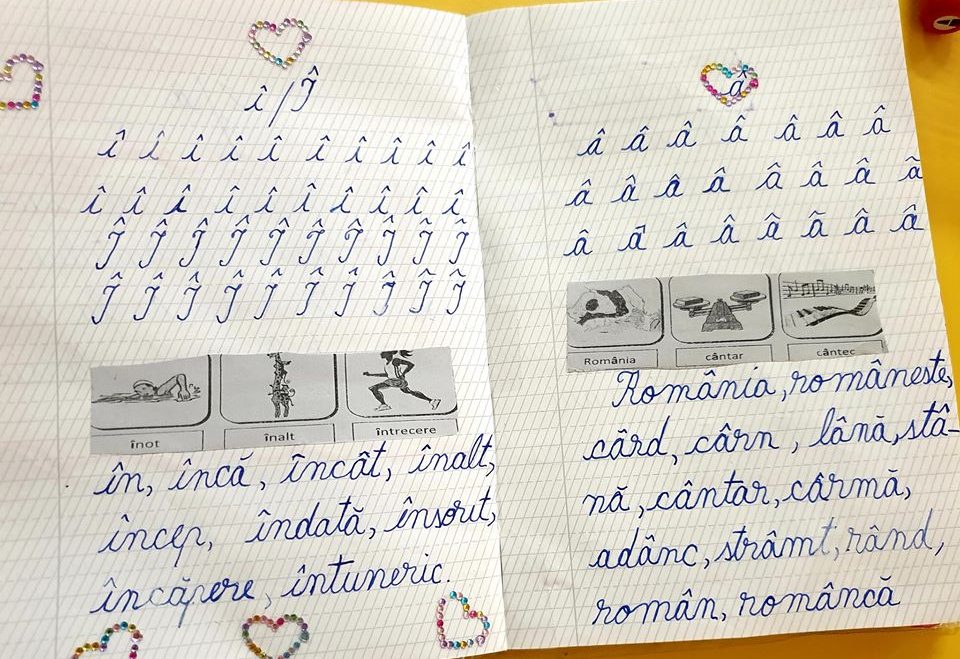 î / Î
î î î î î î î î î î
î î î î î î î î î î
Î Î Î Î Î Î Î Î Î Î
Î Î Î Î Î Î Î Î Î Î
înot înalt întrecere
în, încă, încât, înalt,
încep, îndată, însorit,
încăpere, întuneric.
â
â â â â â â â
â â â â â â â â
â â â â â â â â
România cântar cântec
România, româneste,
cârd, cârn, lână, stâ-
nă, cântar, cârmă,
adânc, strâmt, rând,
român, româncă